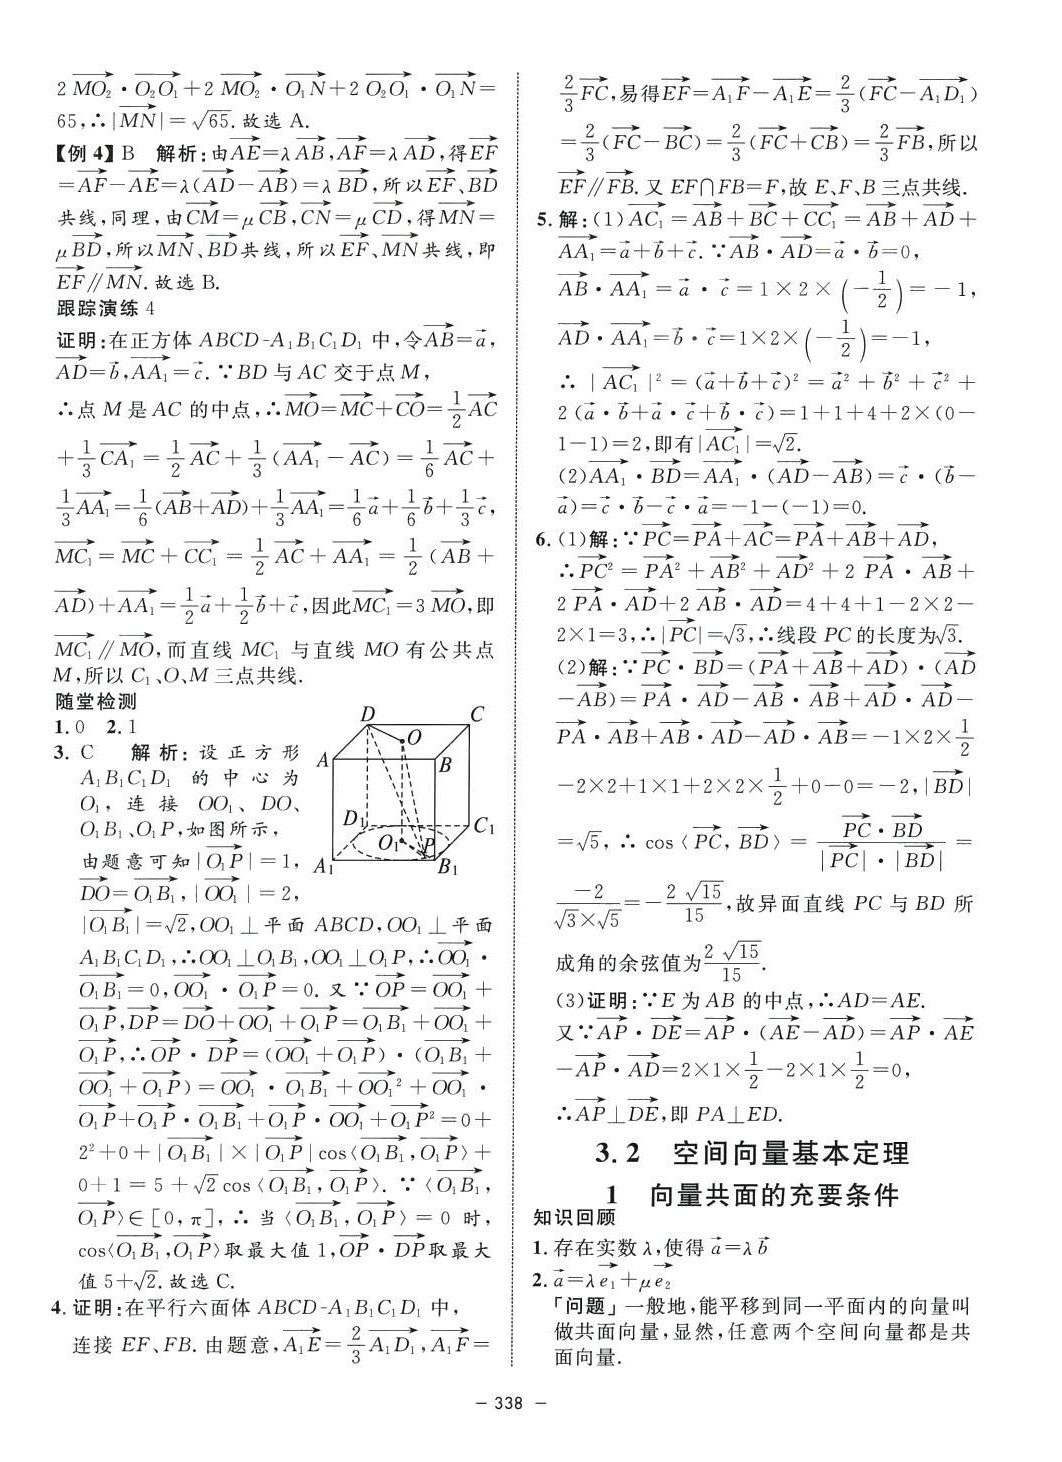 2 MO₂ · O₂O₁ + 2 MO₂ · O₁N + 2 O₂O₁ · O₁N =
65,∴|MN|=√65. 故选 A.
【例4】B 解析:由AE=λAB,AF=λAD,得EF
=AF-AE=λ(AD-AB)=λBD,所以EF、BD
共线,同理,由CM=μCB,CN=μCD,得MN=
μBD,所以MN、BD共线,所以EF、MN共线,即
EF∥MN. 故选 B.
跟踪演练 4
证明:在正方体 ABCD-A₁B₁C₁D₁ 中,令AB=a,
AD=b,AA₁=c. ∵BD 与 AC 交于点 M,
∴点 M 是 AC 的中点,∴MO=MC+CO=1/2 AC
+1/3 CA₁=1/2 AC+1/3(AA₁-AC)=1/6 AC+
1/3 AA₁=1/6(AB+AD)+1/3 AA₁=1/6 a+1/6 b+1/3 c,
MC₁=MC+CC₁=1/2 AC+AA₁=1/2(AB+
AD)+AA₁=1/2 a+1/2 b+c,因此MC₁=3 MO,即
MC₁∥MO,而直线 MC₁ 与直线 MO 有公共点
M,所以 C₁、O、M 三点共线.
随堂检测
1. 0 2. 1
3. C 解析:设正方形
A₁B₁C₁D₁ 的中心为
O₁,连接 OO₁、DO、
O₁B₁、O₁P,如图所示,
由题意可知|O₁P|=1,
DO=O₁B₁,|OO₁|=2,
D C O A B D₁ C₁ O₁ P A₁ B₁
|O₁B₁|=√2,OO₁⊥平面 ABCD,OO₁⊥平面
A₁B₁C₁D₁,∴OO₁⊥O₁B₁,OO₁⊥O₁P,∴OO₁·
O₁B₁=0,OO₁·O₁P=0. 又∵OP=OO₁+
O₁P,DP=DO+OO₁+O₁P=O₁B₁+OO₁+
O₁P,∴OP·DP=(OO₁+O₁P)·(O₁B₁+
OO₁+O₁P)=OO₁·O₁B₁+OO₁²+OO₁·
O₁P+O₁P·O₁B₁+O₁P·OO₁+O₁P²=0+
2²+0+|O₁B₁|×|O₁P|cos⟨O₁B₁,O₁P⟩+
0+1=5+√2 cos⟨O₁B₁,O₁P⟩. ∵⟨O₁B₁,
O₁P⟩∈[0,π],∴当⟨O₁B₁,O₁P⟩=0 时,
cos⟨O₁B₁,O₁P⟩取最大值 1,OP·DP取最大
值 5+√2. 故选 C.
4. 证明:在平行六面体 ABCD-A₁B₁C₁D₁ 中,
连接 EF、FB. 由题意,A₁E=2/3 A₁D₁,A₁F=
2/3 FC,易得EF=A₁F-A₁E=2/3(FC-A₁D₁)
=2/3(FC-BC)=2/3(FC+CB)=2/3 FB,所以
EF∥FB. 又 EF∩FB=F,故 E、F、B 三点共线.
5. 解:(1)AC₁=AB+BC+CC₁=AB+AD+
AA₁=a+b+c. ∵AB·AD=a·b=0,
AB·AA₁=a·c=1×2×(-1/2)=-1,
AD·AA₁=b·c=1×2×(-1/2)=-1,
∴|AC₁|²=(a+b+c)²=a²+b²+c²+
2(a·b+a·c+b·c)=1+1+4+2×(0-
1-1)=2,即有|AC₁|=√2.
(2)AA₁·BD=AA₁·(AD-AB)=c·(b-
a)=c·b-c·a=-1-(-1)=0.
6. (1)解:∵PC=PA+AC=PA+AB+AD,
∴PC²=PA²+AB²+AD²+2 PA·AB+
2 PA·AD+2 AB·AD=4+4+1-2×2-
2×1=3,∴|PC|=√3,∴线段 PC 的长度为√3.
(2)解:∵PC·BD=(PA+AB+AD)·(AD
-AB)=PA·AD-AB·AB+AD·AD-
PA·AB+AB·AD-AD·AB=-1×2×1/2
-2×2+1×1+2×2×1/2+0-0=-2,|BD|
=√5,∴cos⟨PC,BD⟩=PC·BD/(|PC|·|BD|)=
-2/(√3×√5)=-2√15/15,故异面直线 PC 与 BD 所
成角的余弦值为2√15/15.
(3)证明:∵E 为 AB 的中点,∴AD=AE.
又∵AP·DE=AP·(AE-AD)=AP·AE
-AP·AD=2×1×1/2-2×1×1/2=0,
∴AP⊥DE,即 PA⊥ED.
3.2 空间向量基本定理
1 向量共面的充要条件
知识回顾
1. 存在实数 λ,使得 a=λb
2. a=λe₁+μe₂
「问题」一般地,能平移到同一平面内的向量叫
做共面向量,显然,任意两个空间向量都是共
面向量.
- 338 -